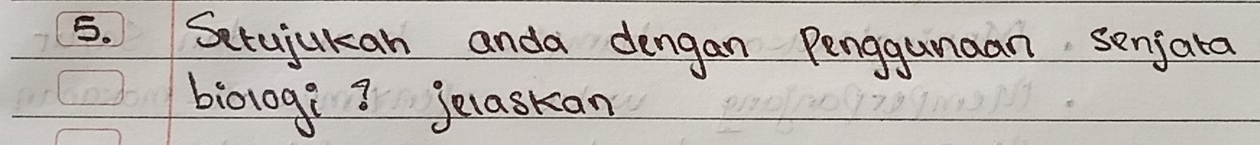 5. Setujukah anda dengan Penggunaan senjata
biologi? jelaskan